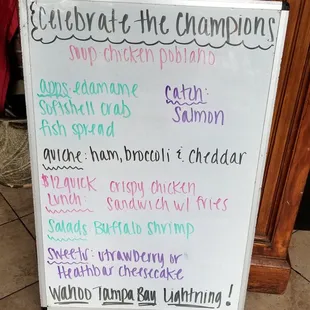 Celebrate the Champions
Soup chicken poblano
apps: edamame
softshell crab
fish spread
catch:
Salmon
quiche: ham, broccoli & cheddar
$12 quick
Lunch: crispy chicken
sandwich w/ fries
Salads Buffalo shrimp
Sweets: strawberry or
Heathbar cheesecake
Wahoo Tampa Bay Lightning!